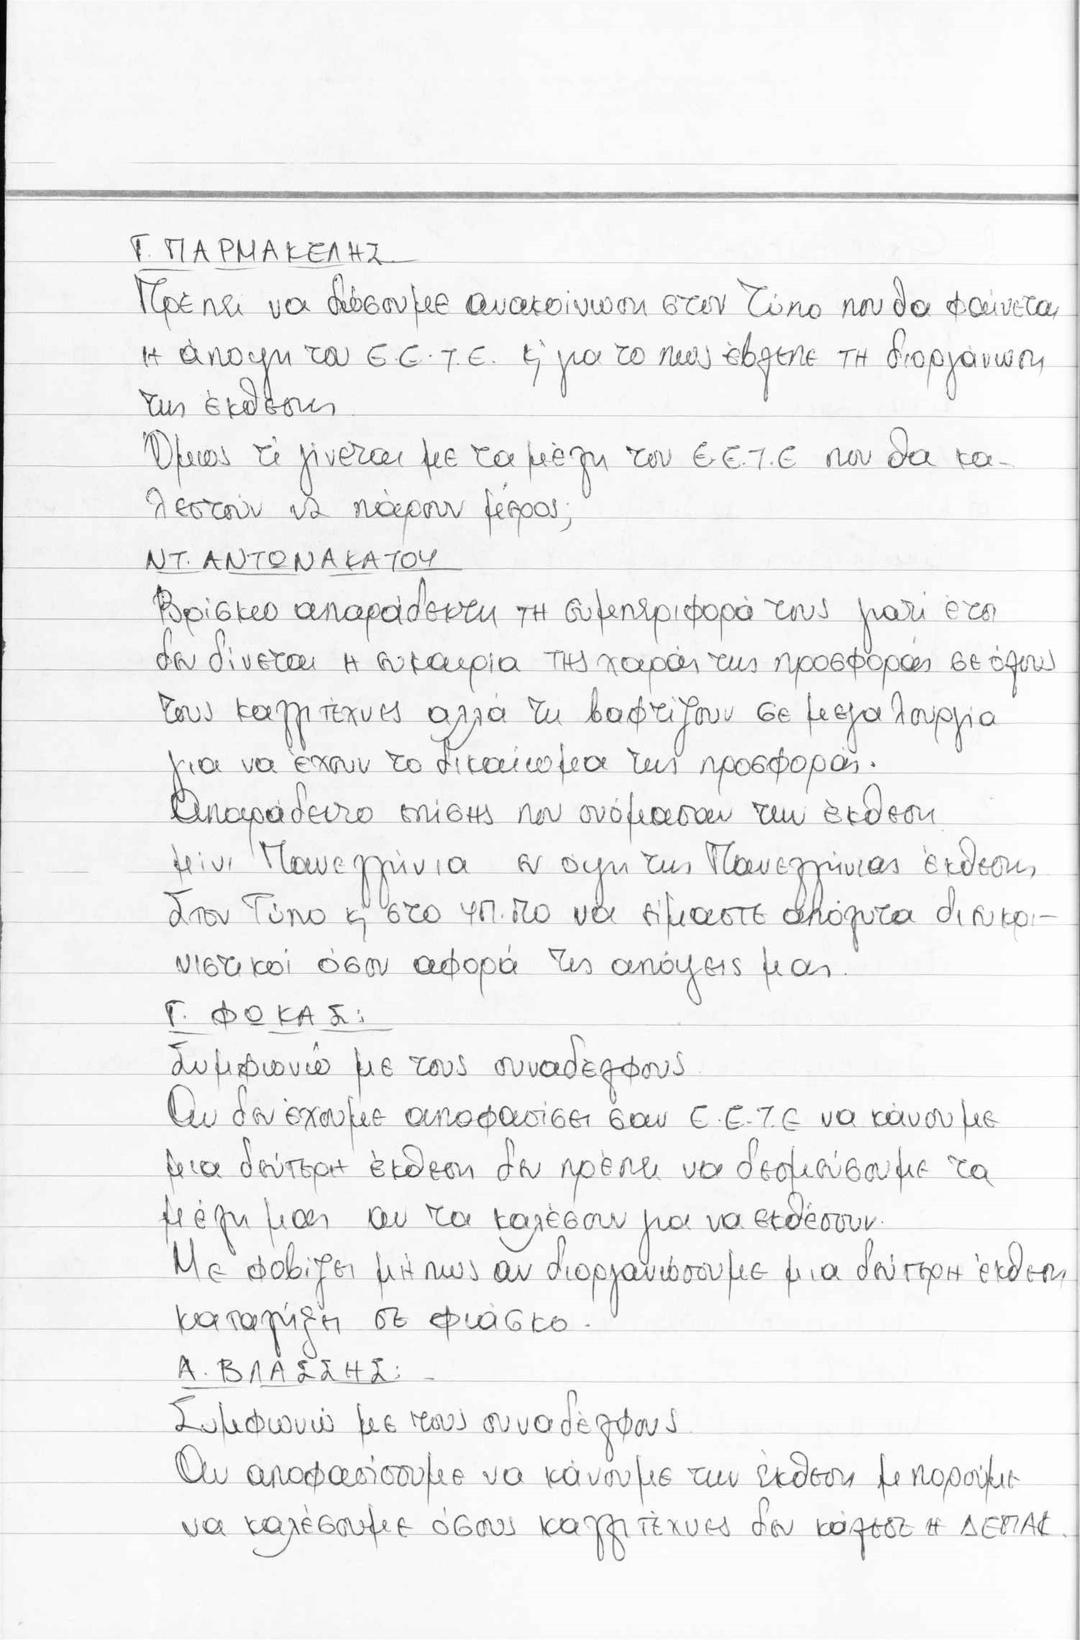 Γ. ΠΑΡΜΑΚΕΛΗΣ
Πρέπει να δώσουμε ανακοίνωση στον Τύπο που θα φαίνεται
η άποψη του Ε.Ε.Τ.Ε. κ' για το πως έβλεπε τη διοργάνωση
της έκθεσης
Όμως τί γίνεται με τα μέλη του Ε.Ε.Τ.Ε που θα κα-
λεστούν να πάρουν μέρος;
ΝΤ. ΑΝΤΩΝΑΚΑΤΟΥ
Βρίσκω απαράδεκτη τη συμπεριφορά τους γιατί έτσι
δεν δίνεται η ευκαιρία της χαράς της προσφοράς σε όλους
τους καλλιτέχνες αλλά τη βαφτίζουν σε μεγαλουργία
για να έχουν το δικαίωμα της προσφοράς.
Απαράδεκτο επίσης που ονόμασαν την έκθεση
μίνι Πανελλήνια εν όψη της Πανελλήνιας έκθεσης
Στον Τύπο κ' στο ΥΠ.ΠΟ να είμαστε απόλυτα διευκρι-
νιστικοί όσον αφορά τις απόψεις μας.
Γ. ΦΩΚΑΣ:
Συμφωνώ με τους συναδέλφους
Αν δεν έχουμε αποφασίσει σαν Ε.Ε.Τ.Ε να κάνουμε
μια δεύτερη έκθεση δεν πρέπει να δεσμεύσουμε τα
μέλη μας αν τα καλέσουν για να εκθέσουν.
Με φοβίζει μήπως αν διοργανώσουμε μια δεύτερη έκθεση
καταλήξη σε φιάσκο.
Α. ΒΛΑΣΣΗΣ:
Συμφωνώ με τους συναδέλφους
Αν αποφασίσουμε να κάνουμε την έκθεση μπορούμε
να καλέσουμε όσους καλλιτέχνες δεν κάλεσε η ΔΕΠΑΚ.